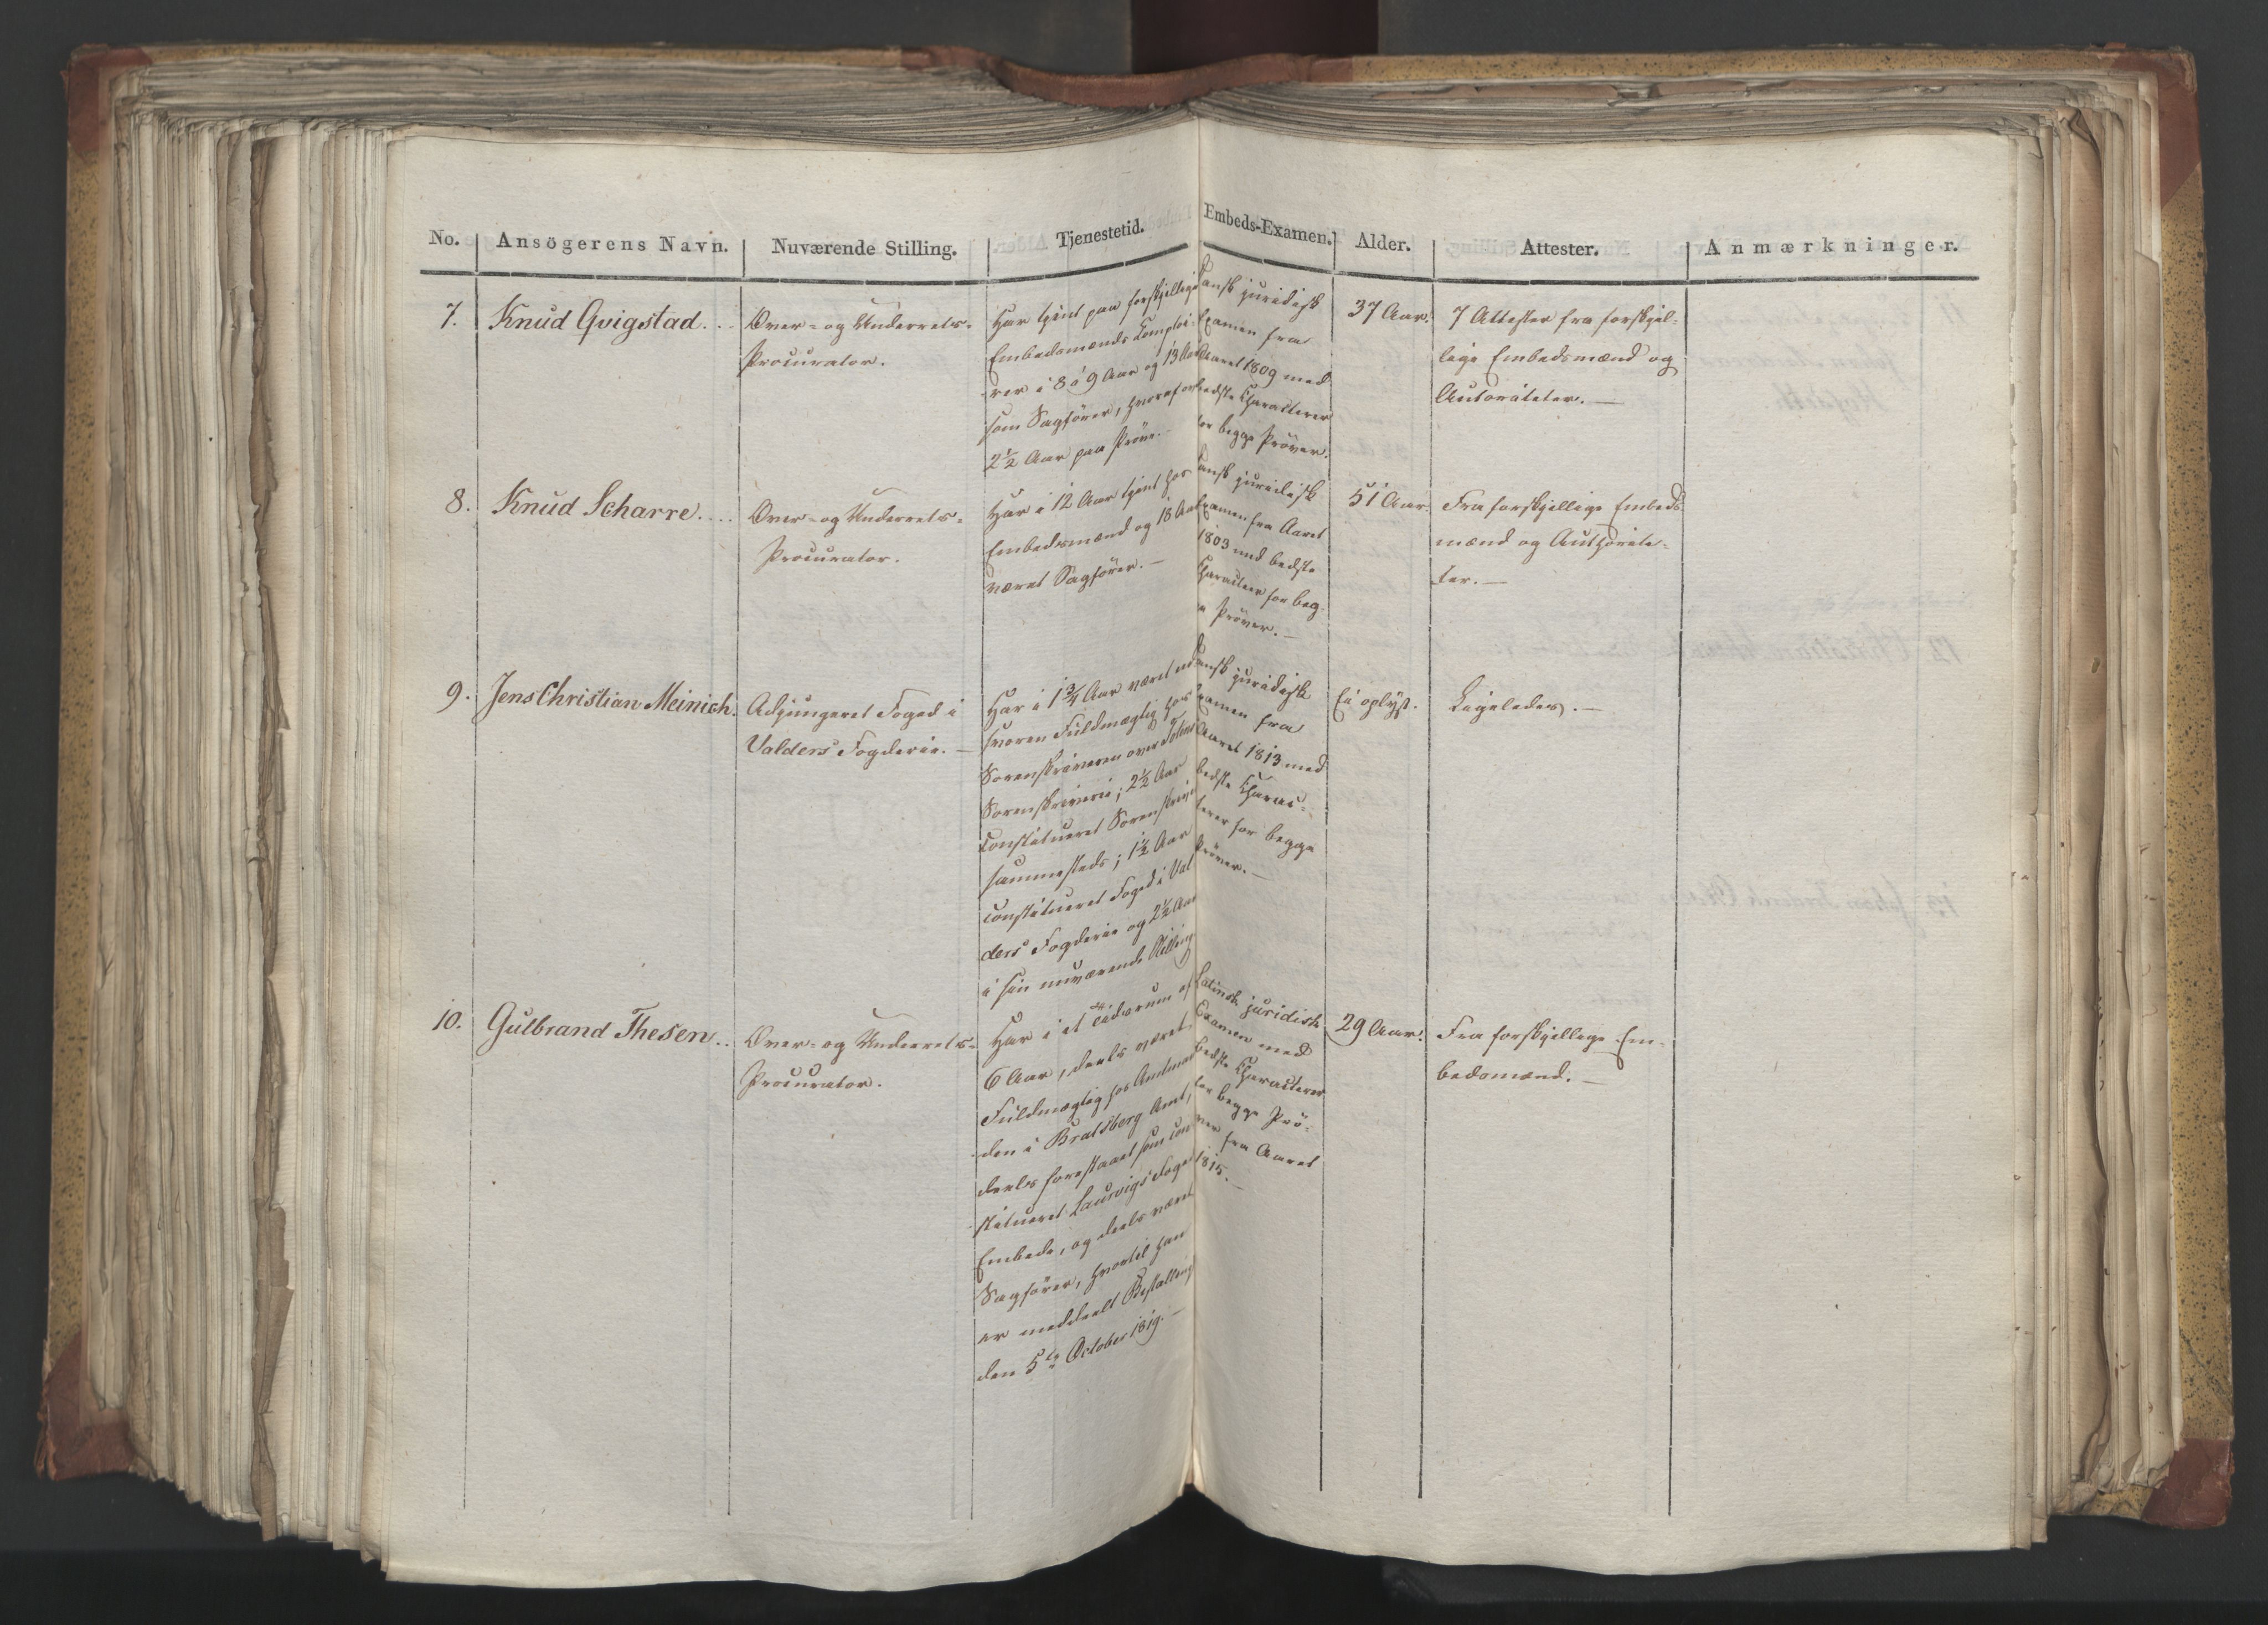 No. Ansögerens Navn. Nuværende Stilling. Tjenestetid. Embeds-Examen. Alder. Attester. Anmærkninger.
7.
Knud Qvigstad...
Over- og Underrets-
Procurator.
Har tjent paa forskjellige
Embedsmænds Comptoi-
rer i 8 à 9 Aar og 13 Aar
som Sagfører, hvoraf
2½ Aar paa Prøve.
Dansk juridisk
Examen fra
Aaret 1809 med
bedste Characterer
for begge Prøver.
37 Aar.
7 Attester fra forskjel-
lige Embedsmænd og
Autoriteter.—
8.
Knud Scharre....
Over- og Underrets-
Procurator.
Har i 12 Aar tjent hos
Embedsmænd og 18 Aar
været Sagfører.—
Dansk juridisk
Examen fra Aaret
1803 med bedste
Character for beg-
ge Prøver.—
51 Aar.
Fra forskjellige Embeds-
mænd og Authorite-
ter.—
9.
Jens Christian Meinich.
Adjungeret Foged i
Valders Fogderie.—
Har i 1¾ Aar været ed-
svoren Fuldmægtig hos
Sorenskriveren over Totens
Sorenskriverie; 2½ Aar
Constitueret Sorenskriver
sammesteds; 1½ Aar
constitueret Foged i Val
ders Fogderie og 2½ Aar
i sin nuværende Stilling
Dansk juridisk
Examen fra
Aaret 1813 med
bedste Charac-
terer for begge
Prøver.—
Ei oplyst.
Ligeledes.—
10.
Gulbrand Thesen..
Over- og Underrets-
Procurator.
Har i et Tidsrum af
6 Aar, deels været
Fuldmægtig hos Amtman
den i Bratsberg Amt,
deels forestaaet som con
stitueret Laurvigs Foged
Embede, og deels været
Sagfører, hvortil han
er meddeelt Bestalling
den 5te October 1819.—
Latinsk juridisk
Examen med
bedste Characterer
for begge Prø-
ver fra Aaret
1815.—
29 Aar.
Fra forskjellige Em-
bedsmænd.—